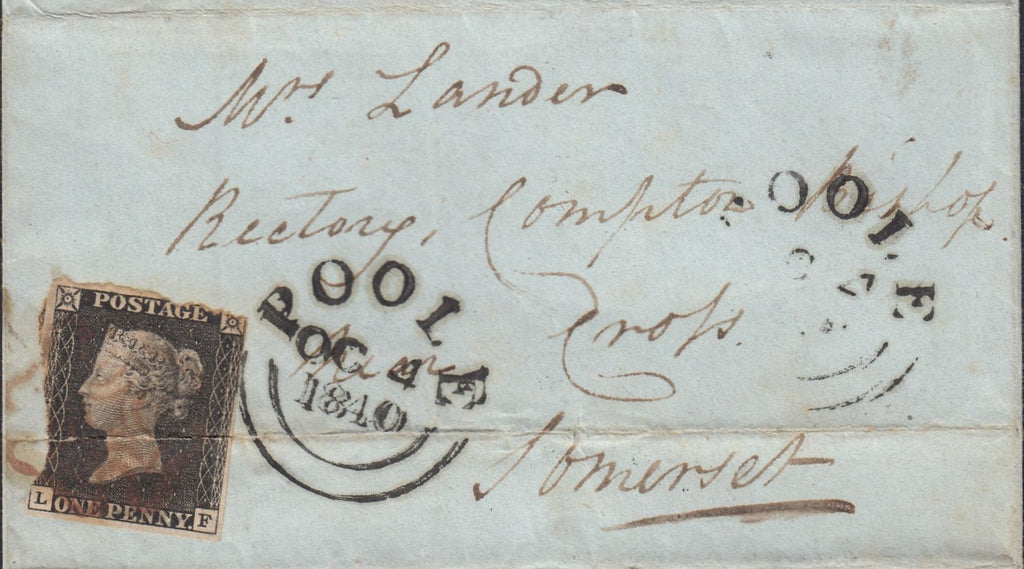 Mrs. Lander
Rectory, Compton Bishop.
near Cross.
Somerset
POOLE
OC 4
1840
OOLE
POSTAGE
L ONE PENNY. F